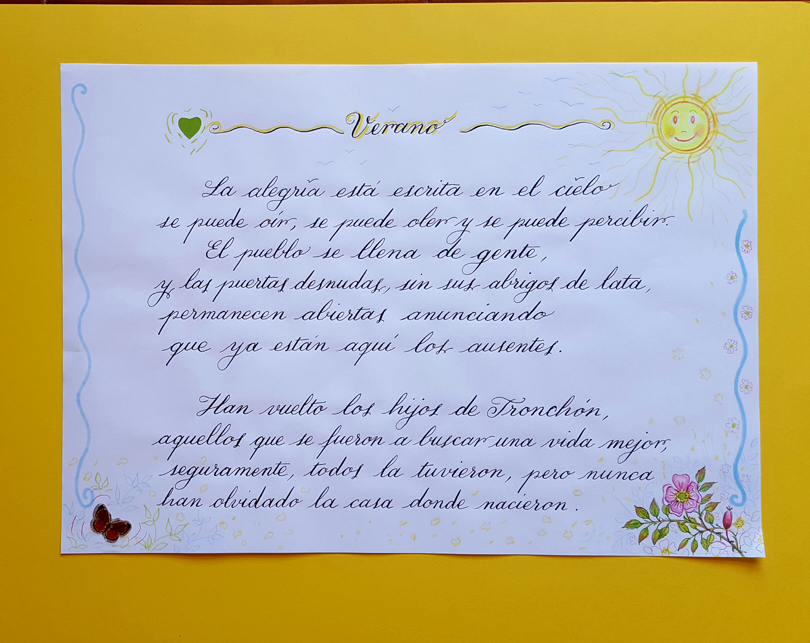 Verano
La alegría está escrita en el cielo
se puede oír, se puede oler y se puede percibir.
El pueblo se llena de gente,
y las puertas desnudas, sin sus abrigos de lata,
permanecen abiertas anunciando
que ya están aquí los ausentes.
Han vuelto los hijos de Tronchón,
aquellos que se fueron a buscar una vida mejor,
seguramente, todos la tuvieron, pero nunca
han olvidado la casa donde nacieron.